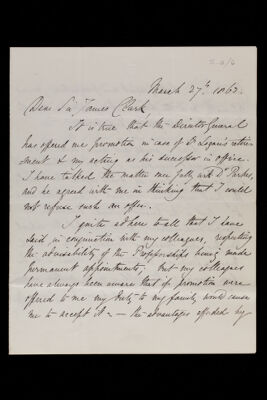 March 27th 1862.
Dear Sir James Clark,
It is true that the Director General
has offered me promotion in case of Dr Logan's retire-
ment & my acting as his successor in office.
I have talked the matter over fully with Dr Parkes,
and he agreed with me in thinking that I could
not refuse such an offer.
I quite adhere to all that I have
said in conjunction with my colleagues, respecting
the advisability of the Professorships being made
permanent appointments, but my colleagues
have always been aware that if promotion were
offered to me my duty to my family would cause
me to accept it – the advantages afforded by